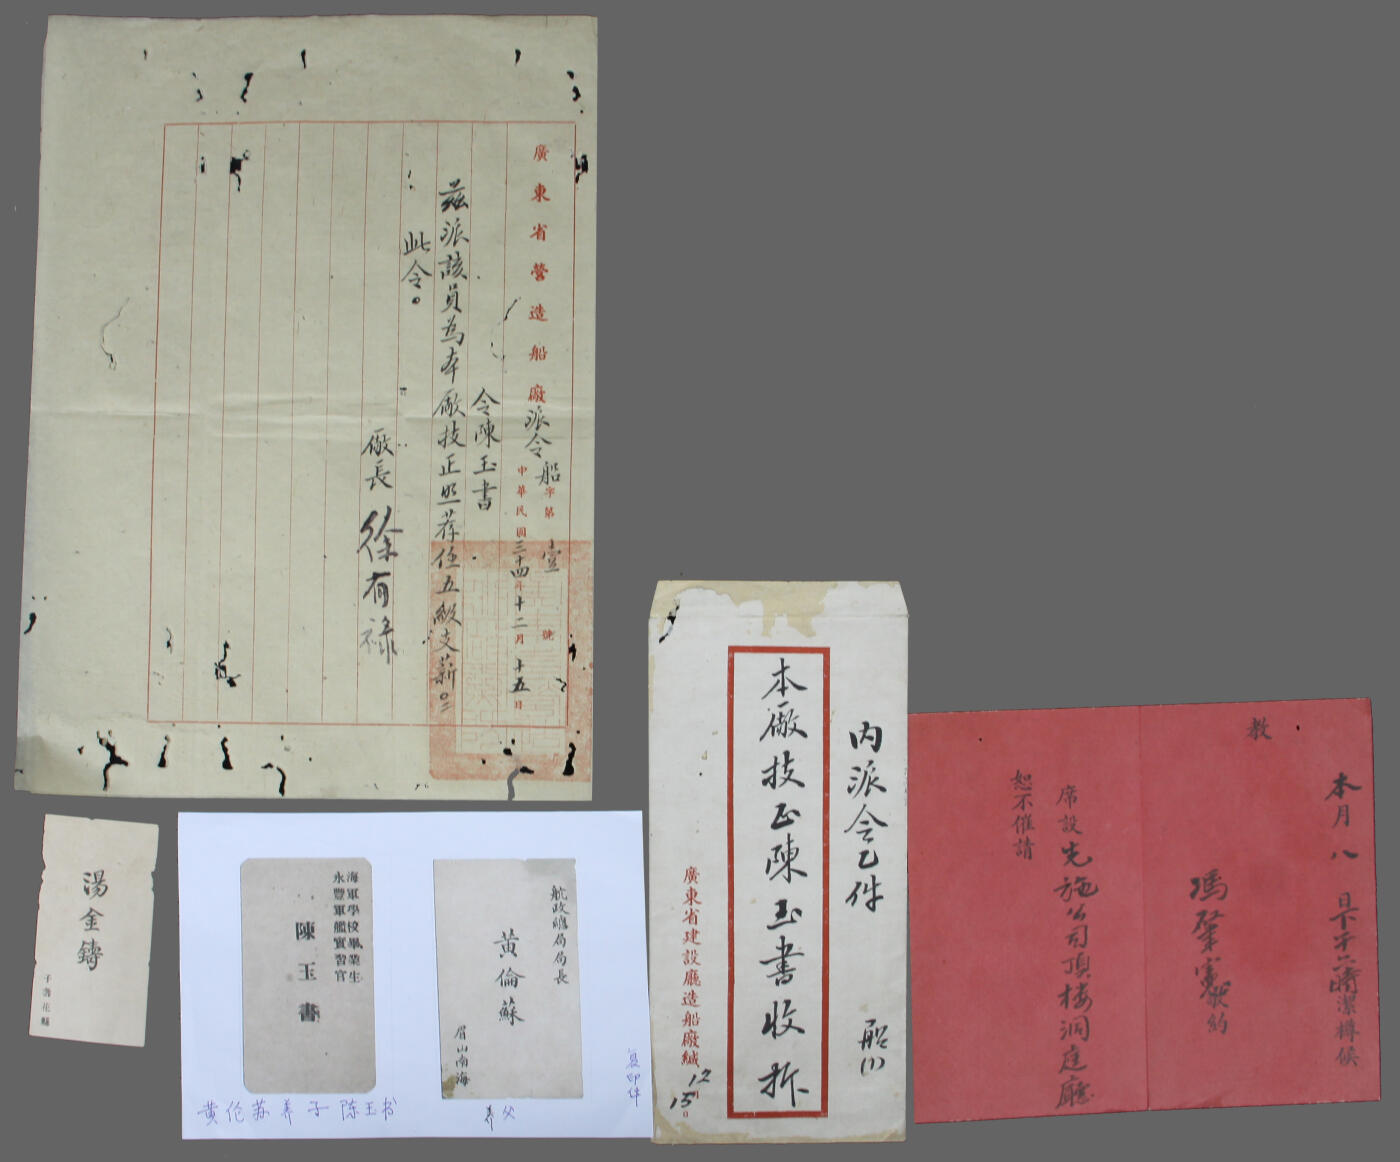 廣東省營造船廠派令
船字第壹號
中華民國三十四年十二月十五日
令陳玉書
茲派該員為本廠技正照荐任五級支薪。
此令。
廠長 徐有祿
湯金鑄
子壽花縣
海軍學校畢業生
永豐軍艦實習官
陳玉書
航政總局局長
黃倫蘇
眉山南海
黄伦苏养子陈玉书
养父
复印件
內派令乙件
船(1)
本廠技正陳玉書收拆
廣東省建設廳造船廠緘
12
15
本月八日下午六時潔樽候
教
馮肇憲 約
席設先施公司頂楼洞庭廳
恕不催請